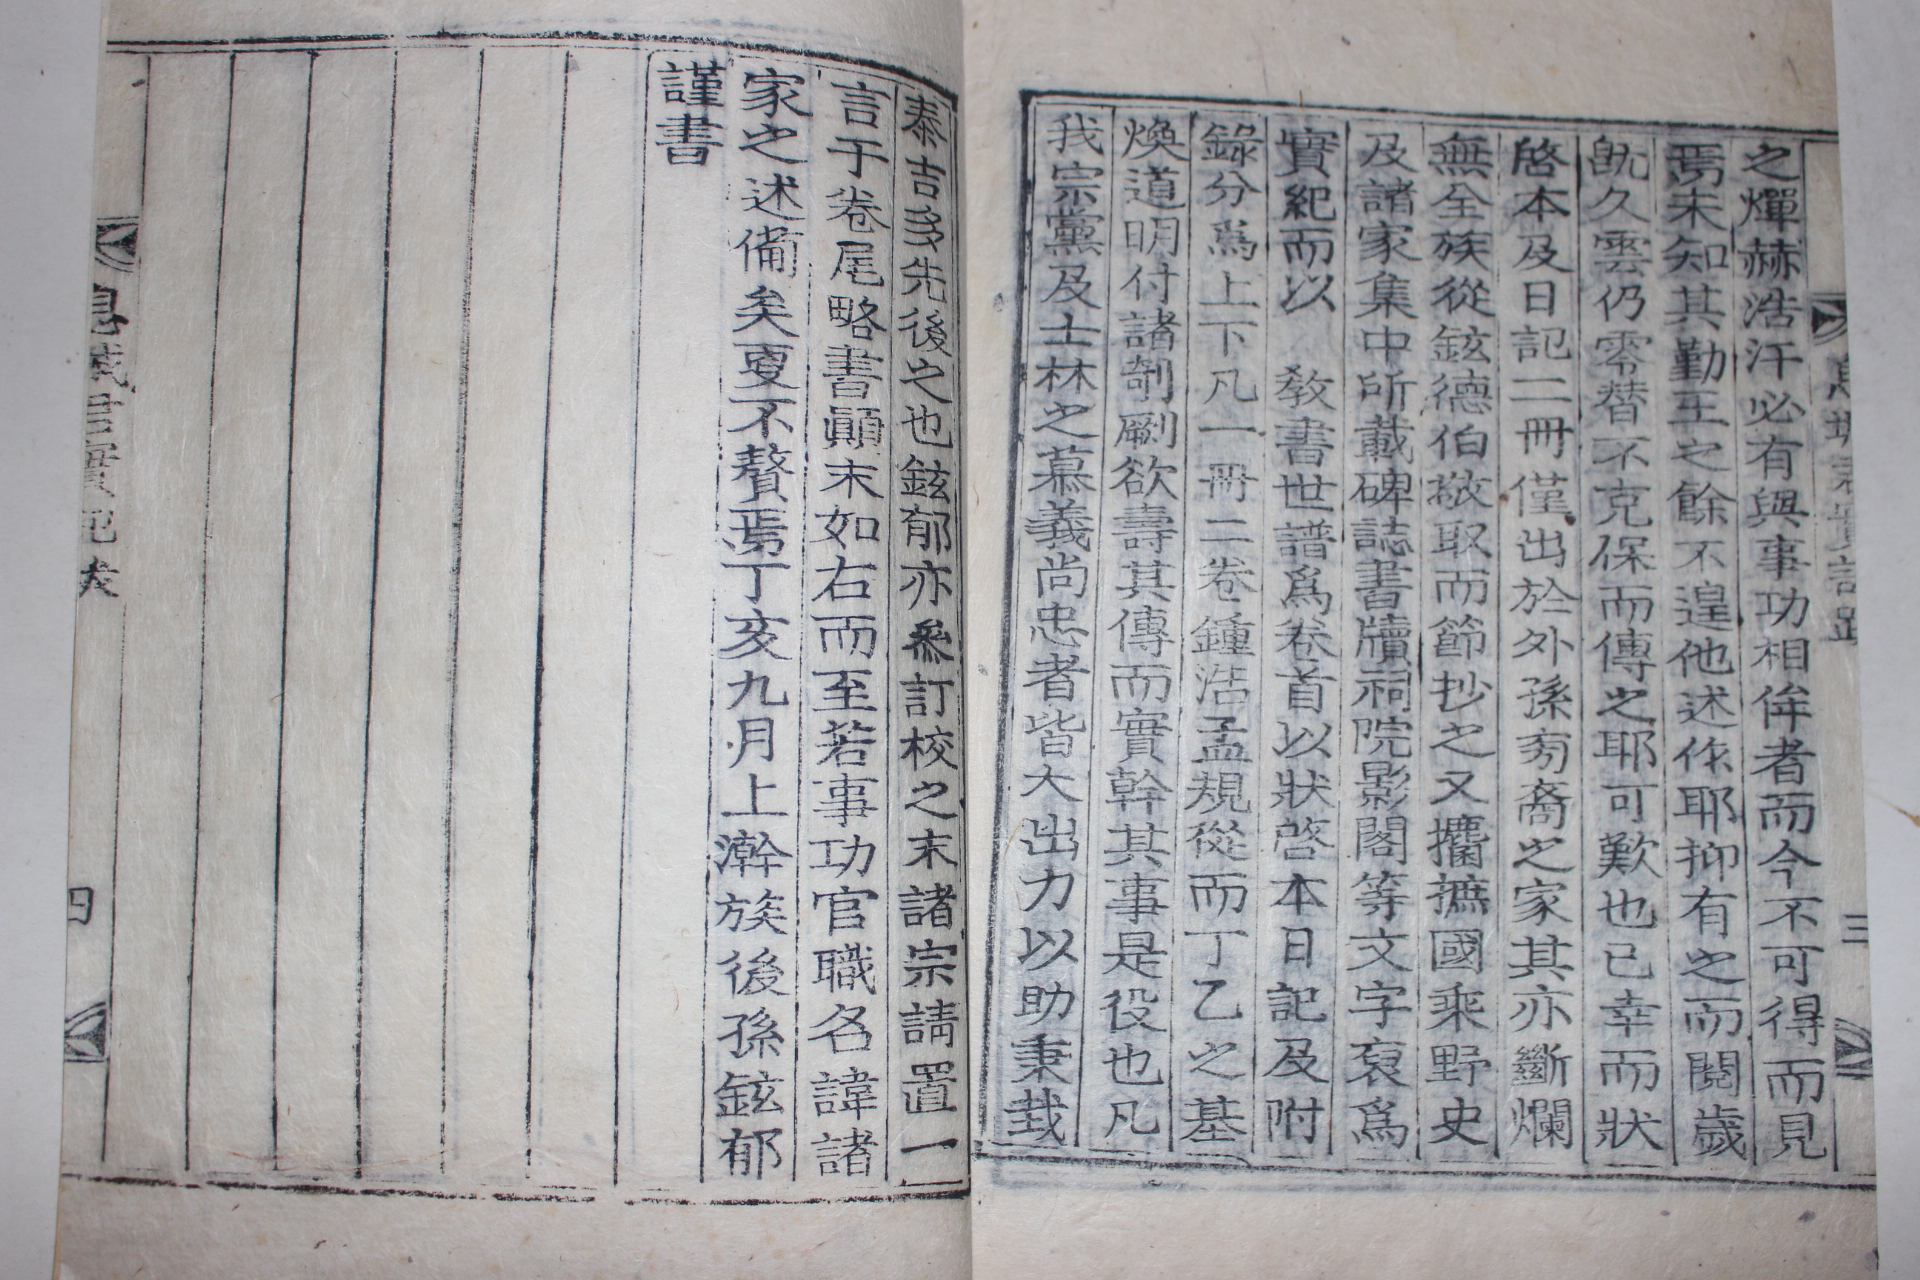 之燀赫浩汗必有與事功相侔者而今不可得而見
焉未知其勤王之餘不遑他述作耶抑有之而閱歲
旣久雲仍零替不克保而傳之耶可歎也已幸而狀
啓本及日記二冊僅出於外孫旁裔之家其亦斷爛
無全族從鉉德伯敬取而節抄之又攟摭國乘野史
及諸家集中所載碑誌書牘祠院影閣等文字裒爲
實紀而以 敎書世譜爲卷首以狀啓本日記及附
錄分爲上下凡一冊二卷鍾浩孟規從而丁乙之基
煥道明付諸剞劂欲壽其傳而實幹其事是役也凡
我宗黨及士林之慕義尚忠者皆大出力以助秉㦲
泰吉多先後之也鉉郁亦叅訂校之末諸宗請置一
言于卷尾略書顚末如右而至若事功官職名諱諸
家之述備矣更不贅焉丁亥九月上澣族後孫鉉郁
謹書
四
三